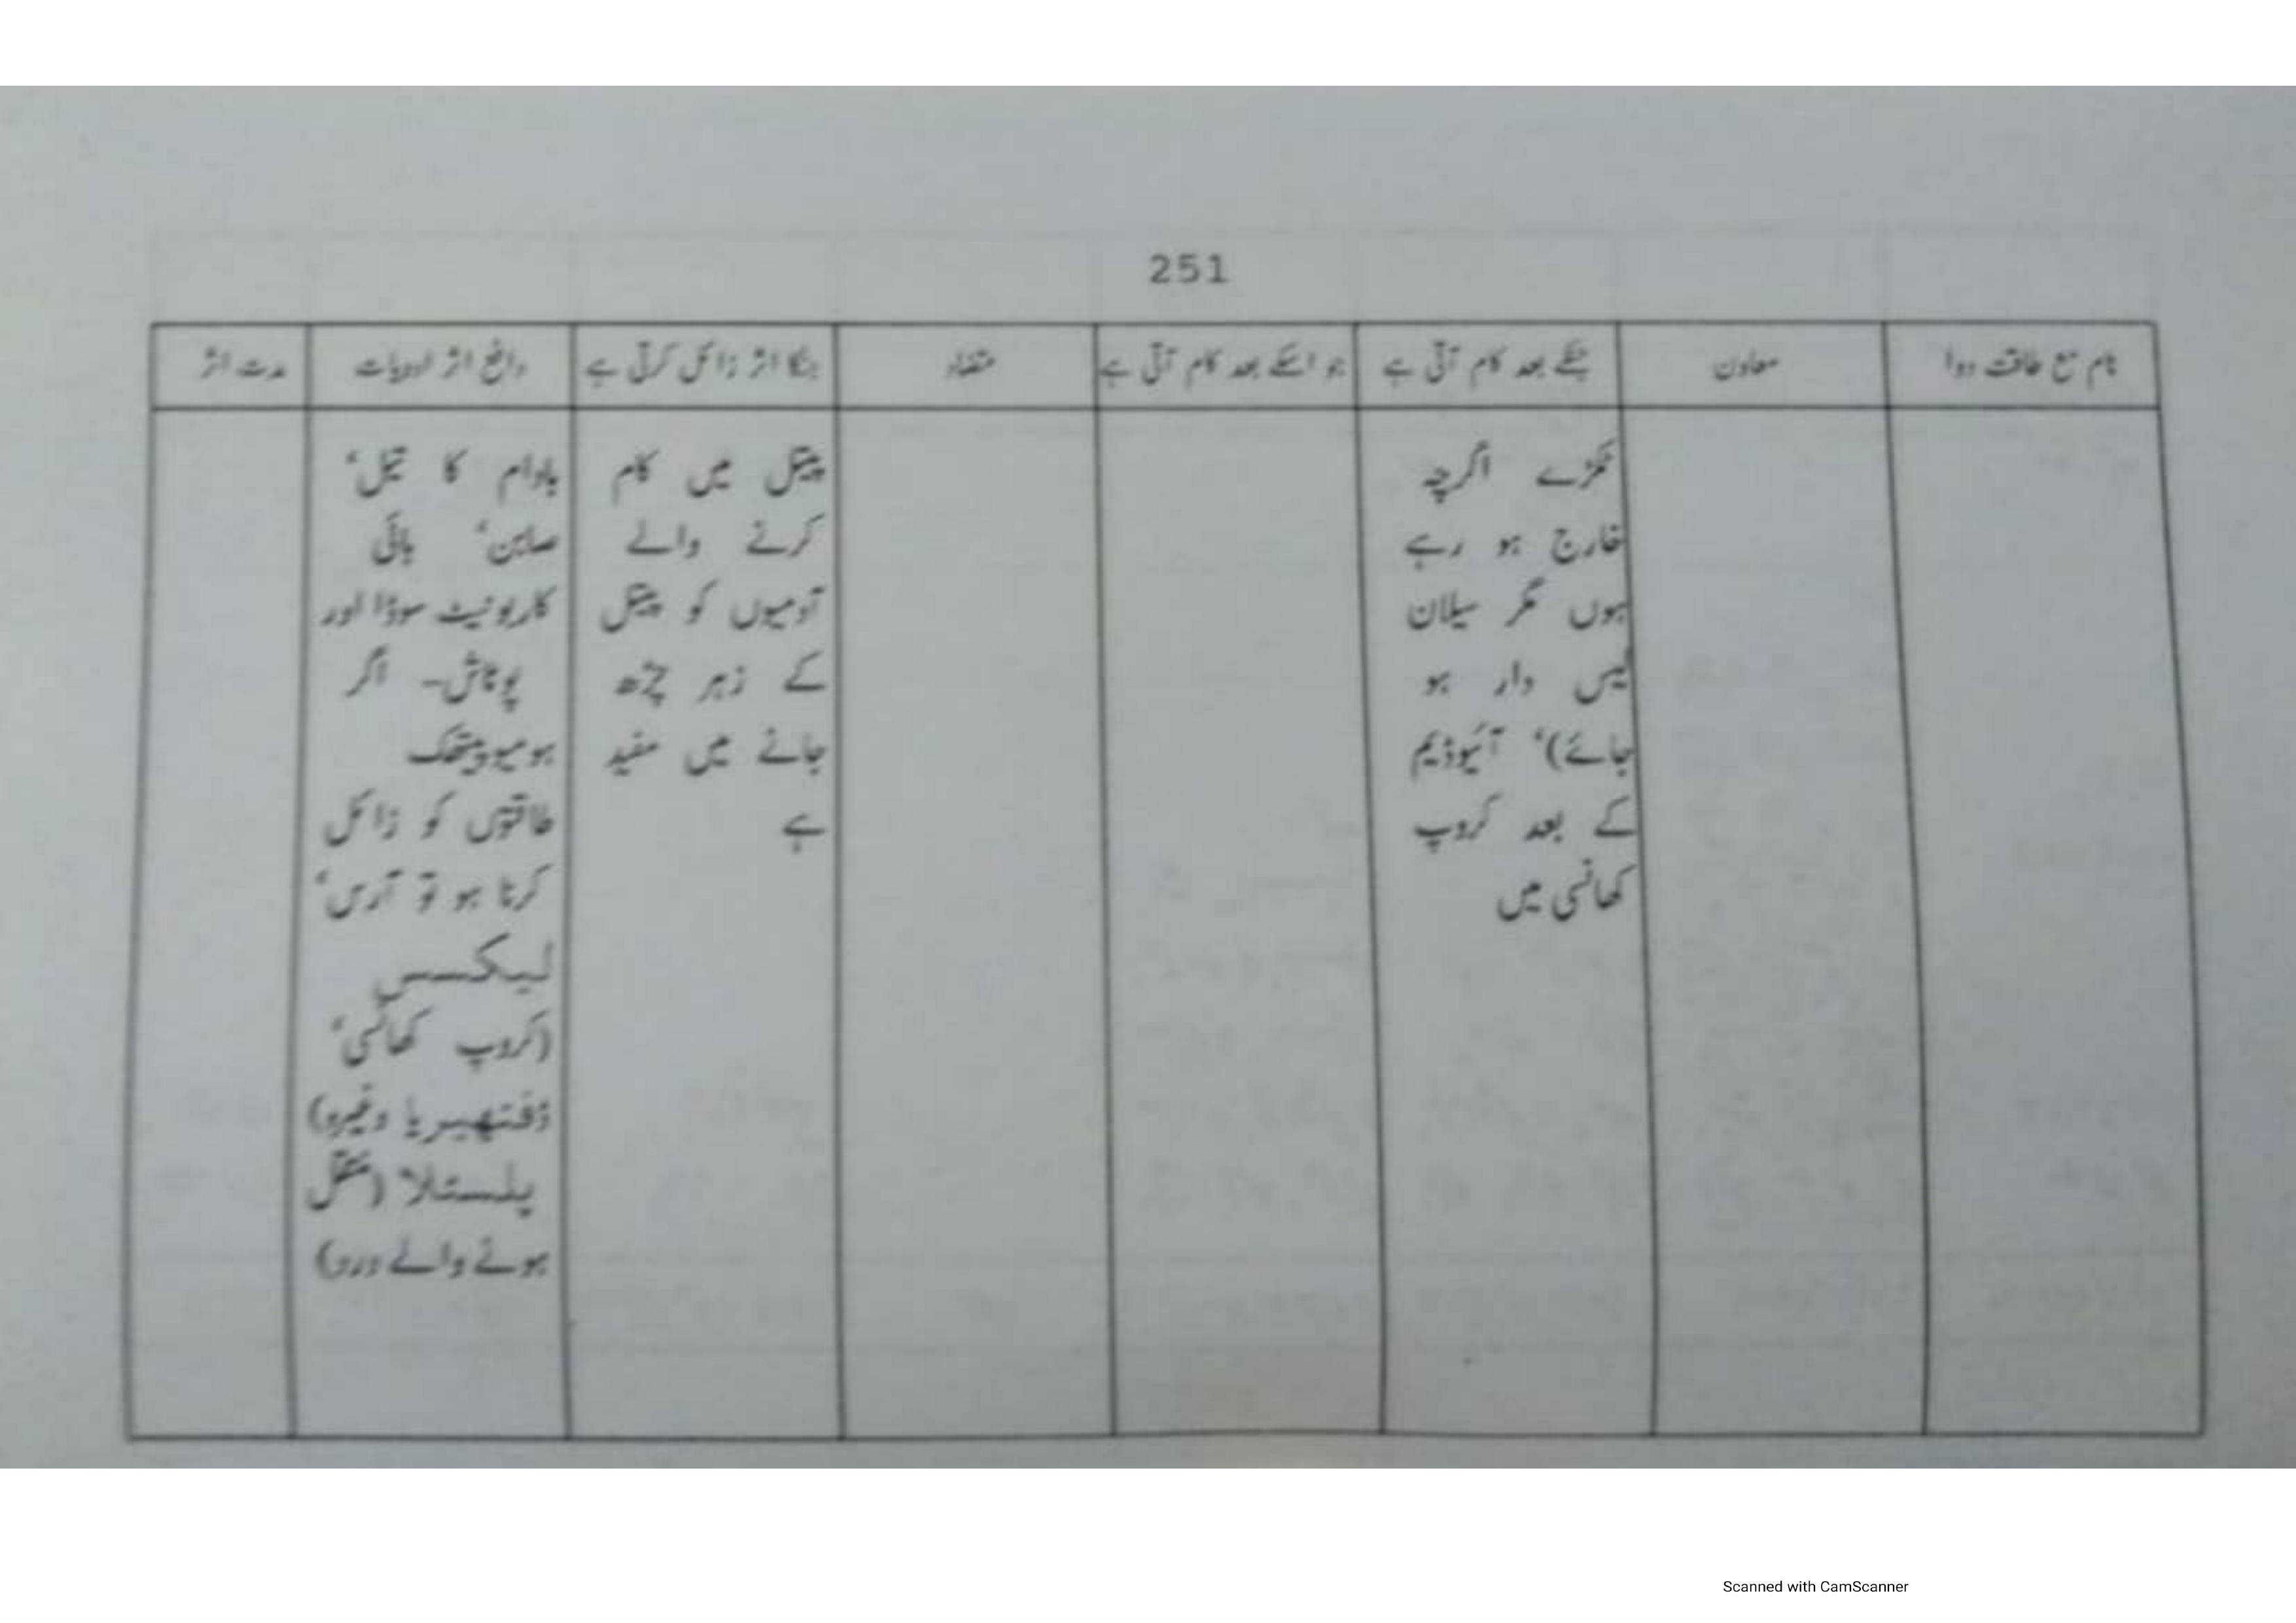 251
نام مع طاقت دوا
معاون
جسکے بعد کام آتی ہے
جو اسکے بعد کام آتی ہے
متضاد
جنکا اثر زائل کرتی ہے
دافع اثر ادویات
مدت اثر
ٹکڑے اگرچہ
خارج ہو رہے
ہوں مگر سیلان
لیس دار ہو
جائے)‘ آئیوڈیم
کے بعد کروپ
کھانسی میں
پیتل میں کام
کرنے والے
آدمیوں کو پیتل
کے زہر چڑھ
جانے میں مفید
ہے
بادام کا تیل‘
صابن‘ بائی
کاربونیٹ سوڈا اور
پوٹاش۔ اگر
ہومیوپیتھک
طاقتوں کو زائل
کرنا ہو تو آرس‘
لیکسس
(کروپ کھانسی‘
ڈفتھیریا وغیرہ)
پلسٹلا (منتقل
ہونے والے درد)
Scanned with CamScanner